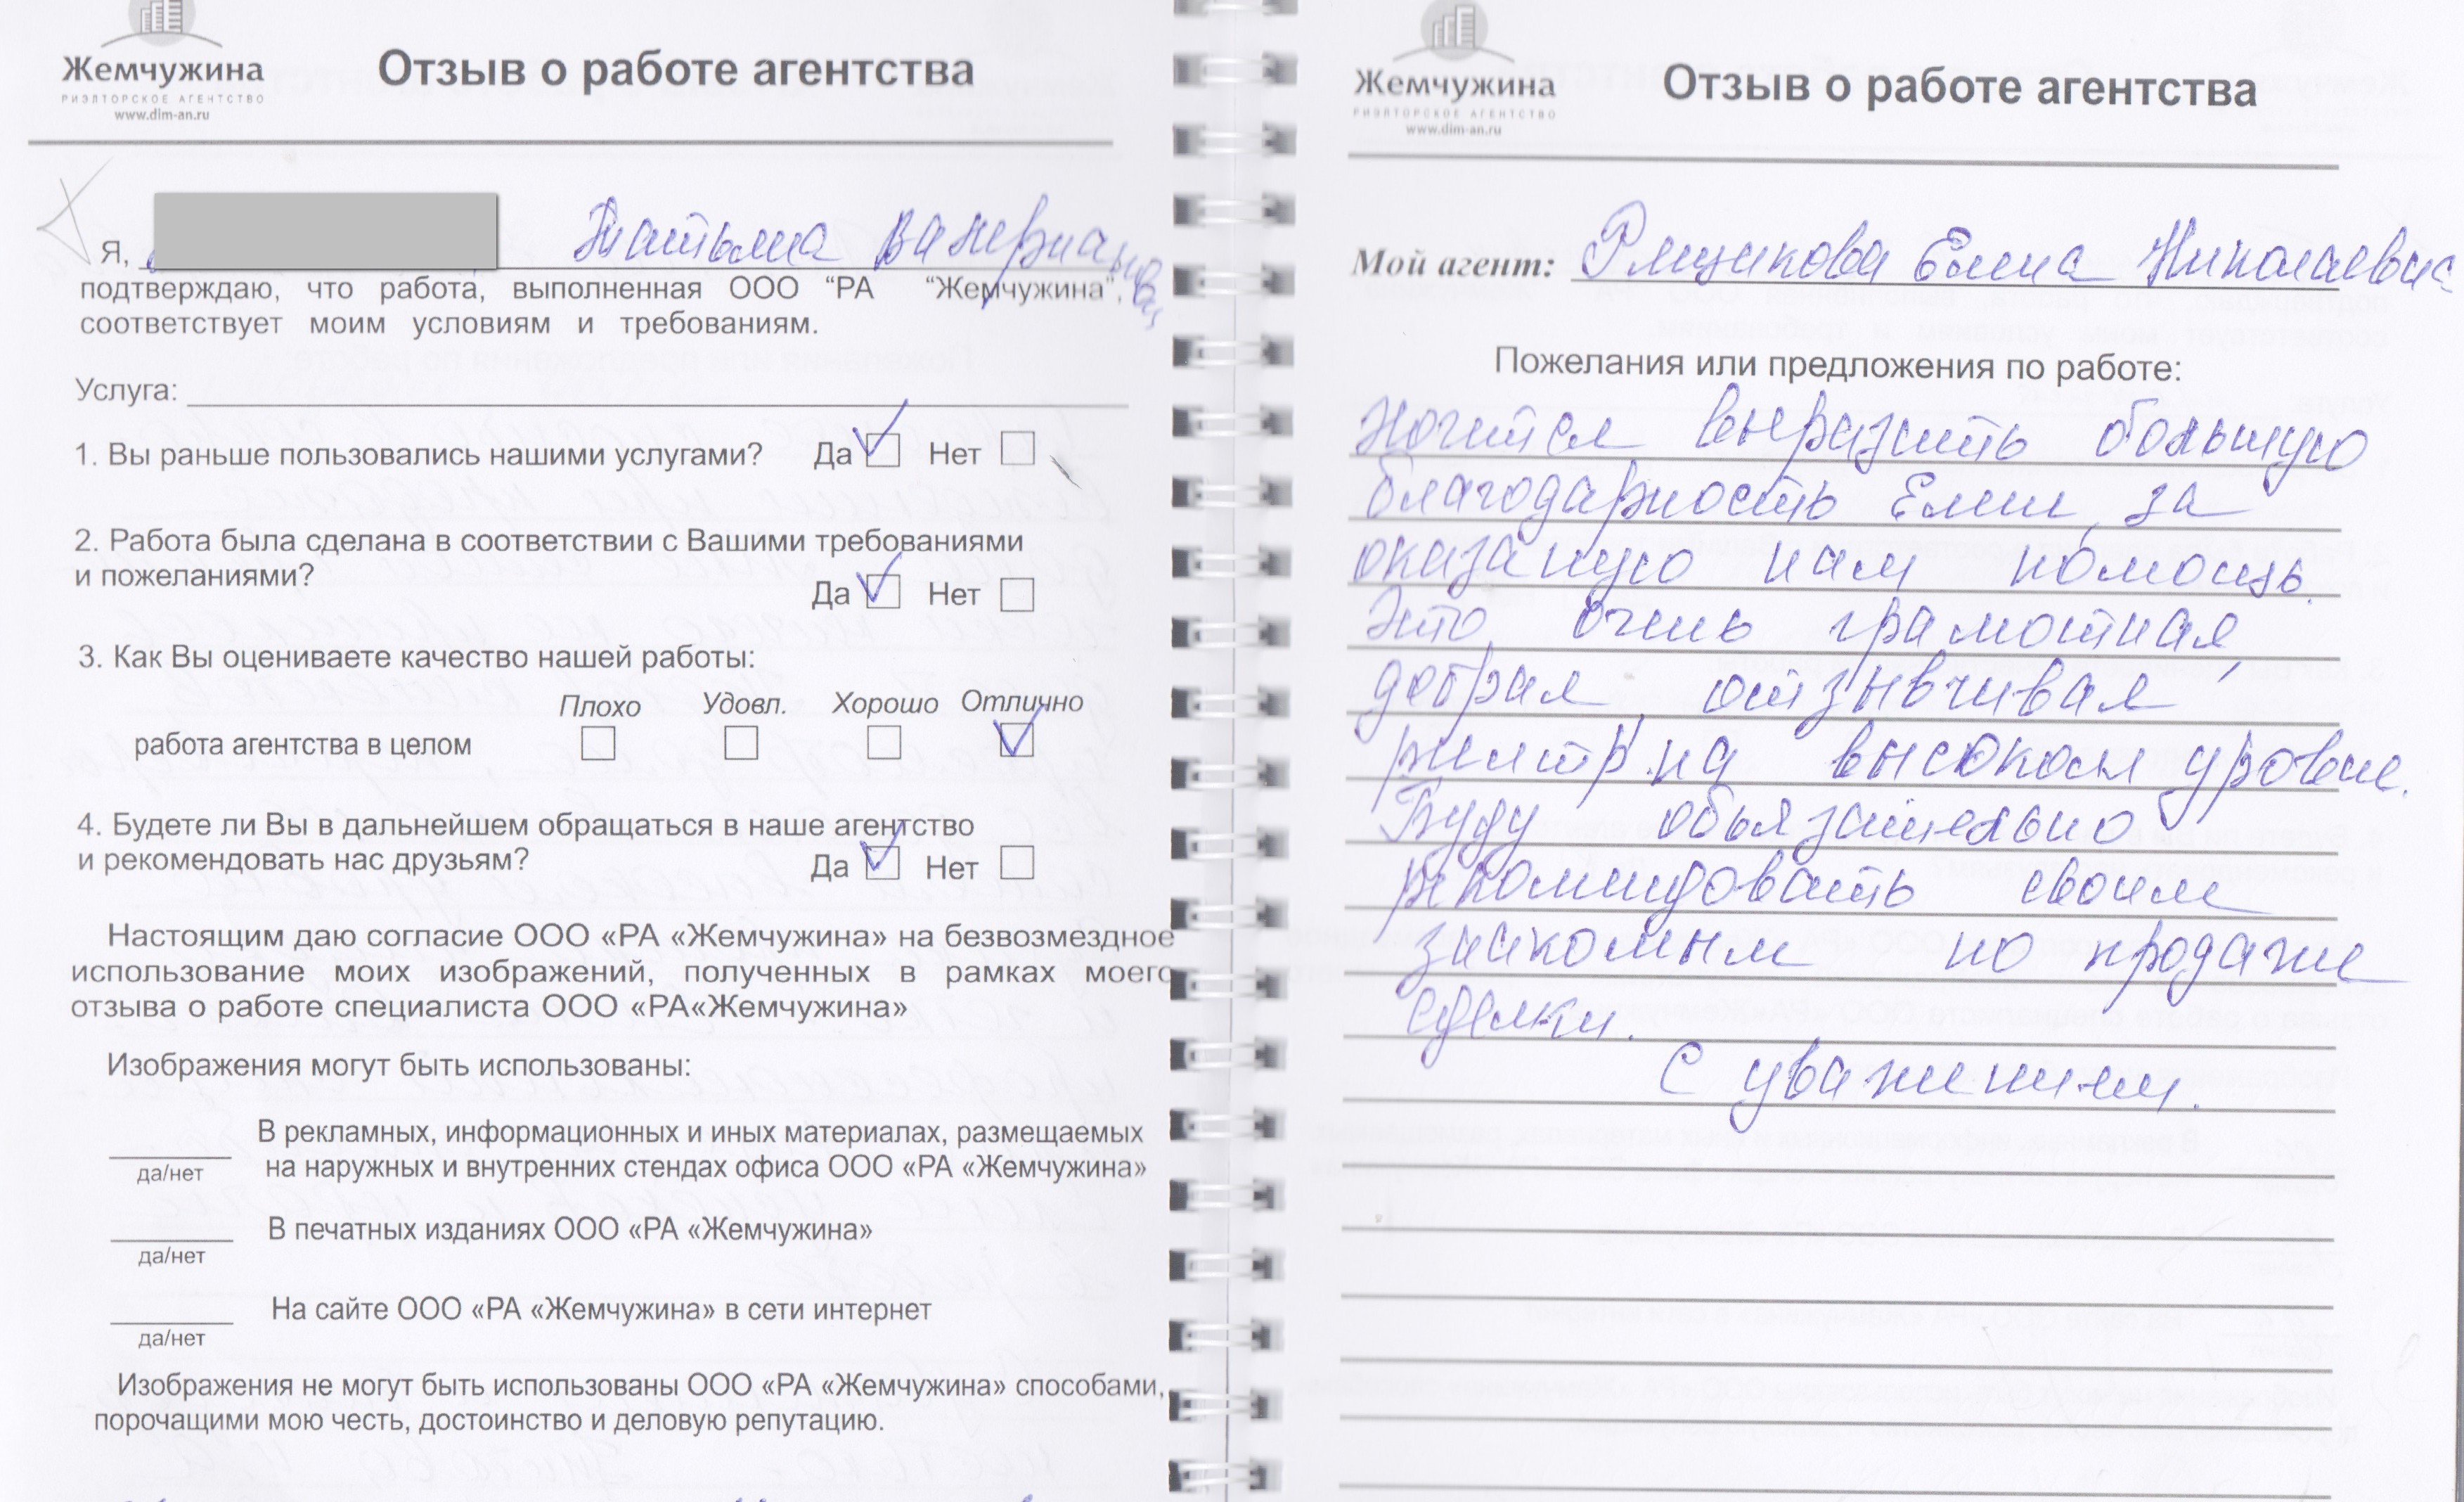 Жемчужина
РИЭЛТОРСКОЕ АГЕНТСТВО
www.dim-an.ru
Отзыв о работе агентства
Я, Татьяна Валериановна
подтверждаю, что работа, выполненная ООО “РА “Жемчужина”,
соответствует моим условиям и требованиям.
Услуга:
1. Вы раньше пользовались нашими услугами? Да Нет
2. Работа была сделана в соответствии с Вашими требованиями
и пожеланиями?
Да Нет
3. Как Вы оцениваете качество нашей работы:
Плохо Удовл. Хорошо Отлично
работа агентства в целом
4. Будете ли Вы в дальнейшем обращаться в наше агентство
и рекомендовать нас друзьям? Да Нет
Настоящим даю согласие ООО «РА «Жемчужина» на безвозмездное
использование моих изображений, полученных в рамках моего
отзыва о работе специалиста ООО «РА«Жемчужина»
Изображения могут быть использованы:
В рекламных, информационных и иных материалах, размещаемых
да/нет на наружных и внутренних стендах офиса ООО «РА «Жемчужина»
В печатных изданиях ООО «РА «Жемчужина»
да/нет
На сайте ООО «РА «Жемчужина» в сети интернет
да/нет
Изображения не могут быть использованы ООО «РА «Жемчужина» способами,
порочащими мою честь, достоинство и деловую репутацию.
Жемчужина
РИЭЛТОРСКОЕ АГЕНТСТВО
www.dim-an.ru
Отзыв о работе агентства
Мой агент: Елена Николаевна
Пожелания или предложения по работе:
Хочется выразить большую
благодарность Елене за
оказаную нам помощь.
Это очень грамотная,
добрая, отзывчивая,
риелтр на высоком уровне.
Буду обьязательно
рекомендовать своим
знакомым по продаже
сделки.
С уважением.